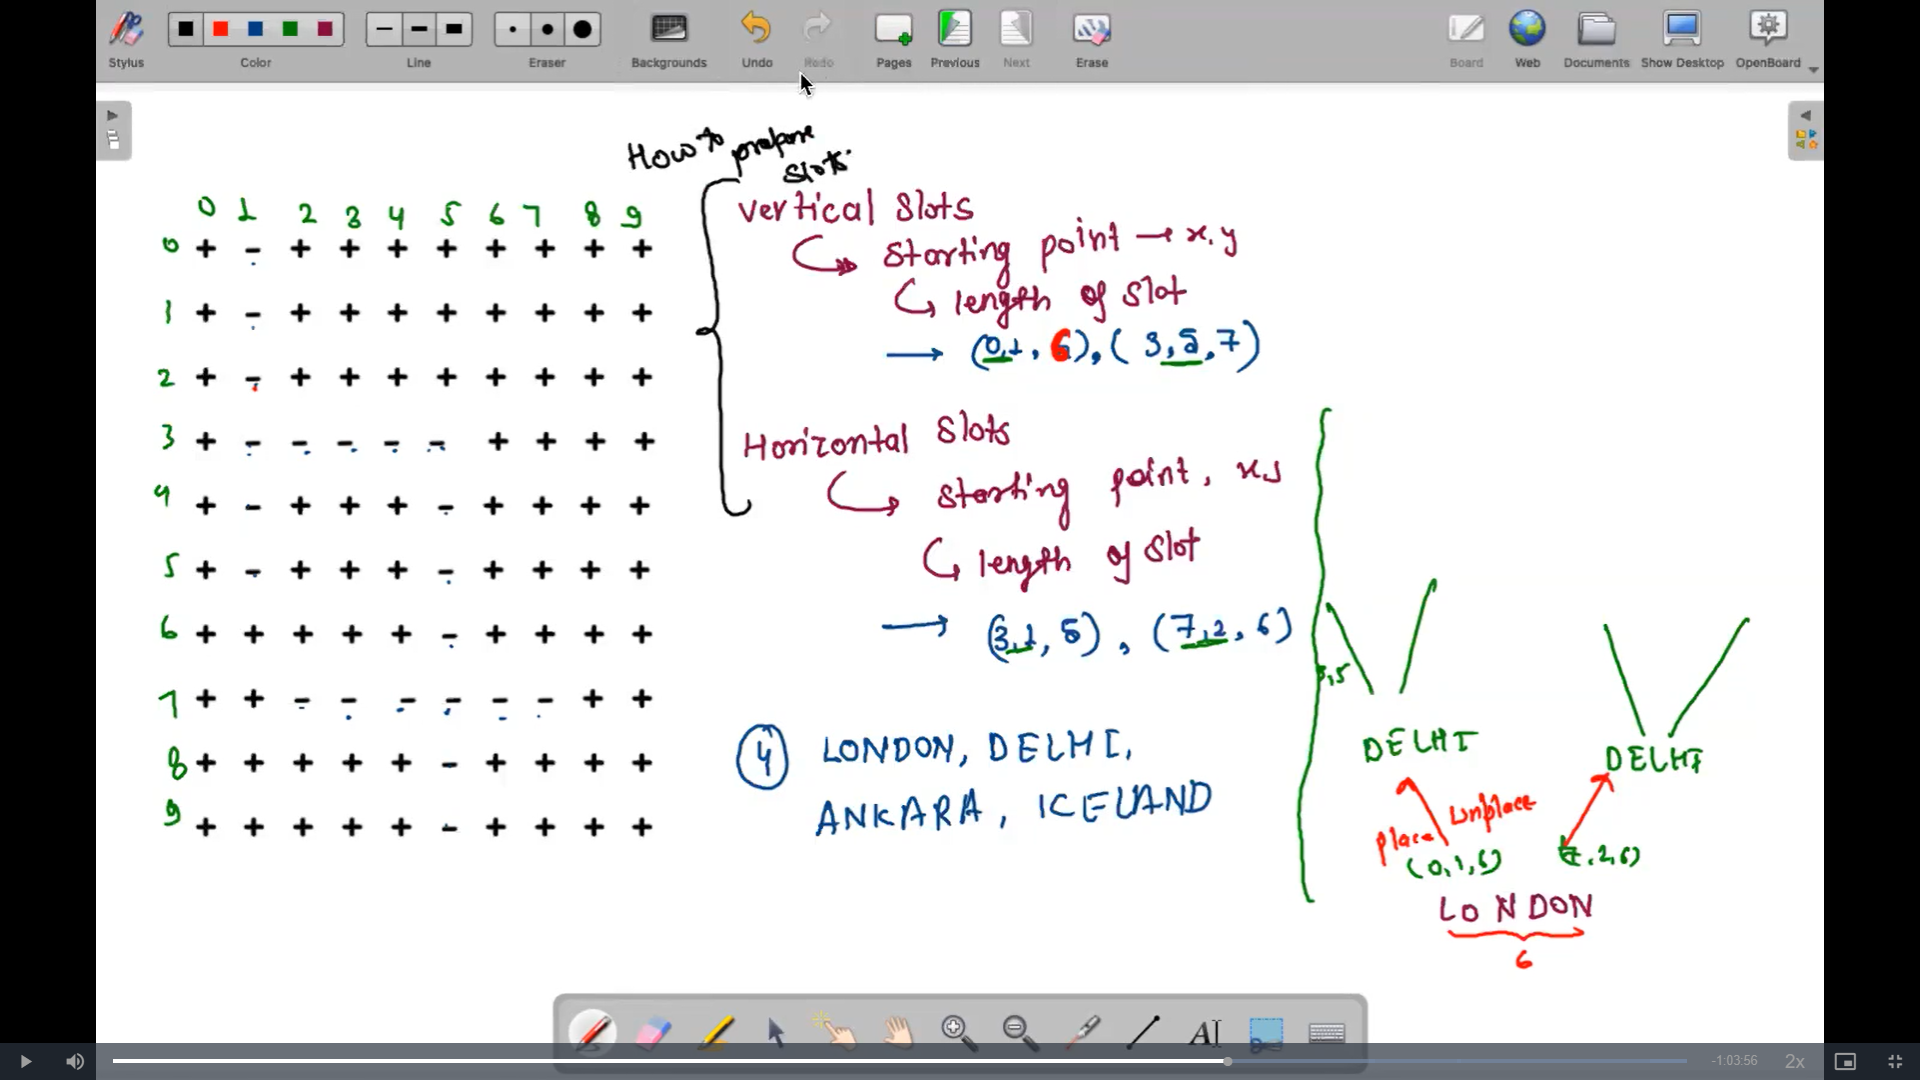 Stylus Color Line Eraser Backgrounds Undo Redo Pages Previous Next Erase Board Web Documents Show Desktop OpenBoard
How to prepare
slots.
0 1 2 3 4 5 6 7 8 9
0 + - + + + + + + + +
1 + - + + + + + + + +
2 + - + + + + + + + +
3 + - - - - - + + + +
4 + - + + + - + + + +
5 + - + + + - + + + +
6 + + + + + - + + + +
7 + + - - - - - - + +
8 + + + + + - + + + +
9 + + + + + - + + + +
Vertical Slots
Starting point → x, y
length of slot
→ (0,1, 6), (3,5,7)
Horizontal Slots
starting point, x,y
length of slot
→ (3,1,5), (7,2,6)
4 LONDON, DELHI,
ANKARA, ICELAND
3,5
DELHI
DELHI
place unplace
(0,1,6)
(7,2,6)
LONDON
6
AI
-1:03:56 2x